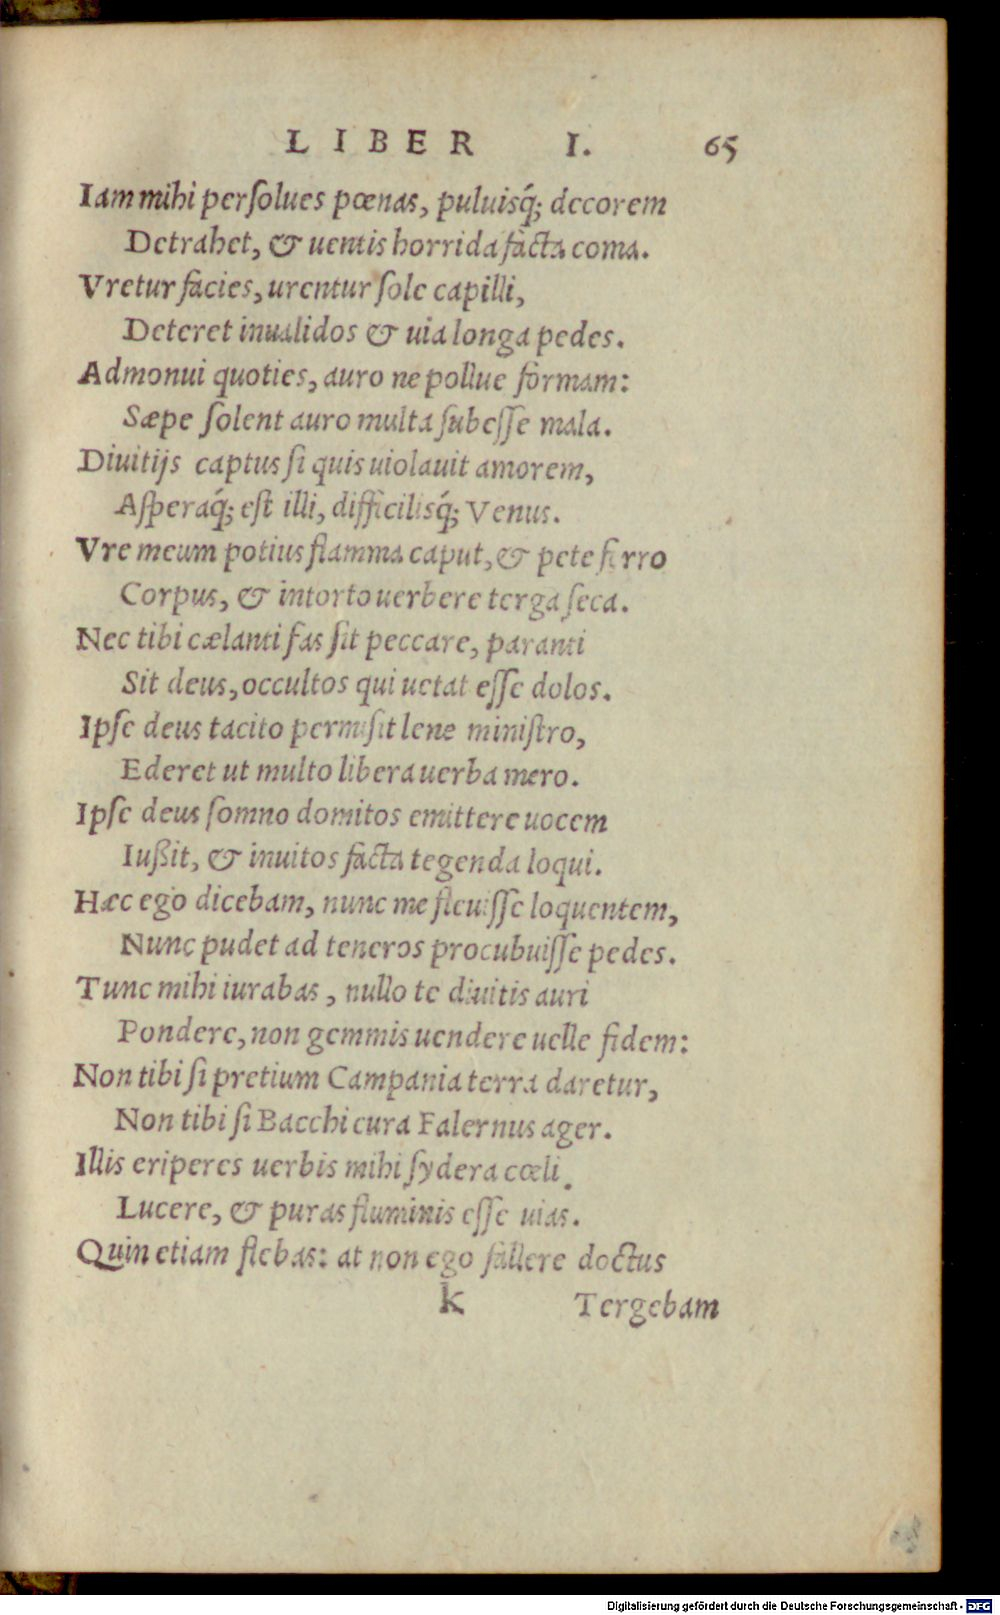 LIBER I. 65
Iam mihi persolues pœnas, puluisq́; decorem
Detrahet, & uentis horrida facta coma.
Vretur facies, urentur sole capilli,
Deteret inualidos & uia longa pedes.
Admonui quoties, auro ne pollue formam:
Sæpe solent auro multa subesse mala.
Diuitijs captus si quis uiolauit amorem,
Asperaq́; est illi, difficilisq́; Venus.
Vre meum potius flamma caput, & pete ferro
Corpus, & intorto uerbere terga seca.
Nec tibi cælanti fas sit peccare, paranti
Sit deus, occultos qui uetat esse dolos.
Ipse deus tacito permisit lene ministro,
Ederet ut multo libera uerba mero.
Ipse deus somno domitos emittere uocem
Iußit, & inuitos facta tegenda loqui.
Hæc ego dicebam, nunc me fleuisse loquentem,
Nunc pudet ad teneros procubuisse pedes.
Tunc mihi iurabas, nullo te diuitis auri
Pondere, non gemmis uendere uelle fidem:
Non tibi si pretium Campania terra daretur,
Non tibi si Bacchi cura Falernus ager.
Illis eriperes uerbis mihi sydera cœli.
Lucere, & puras fluminis esse uias.
Quin etiam flebas: at non ego fallere doctus
k Tergebam
Digitalisierung gefördert durch die Deutsche Forschungsgemeinschaft - DFG